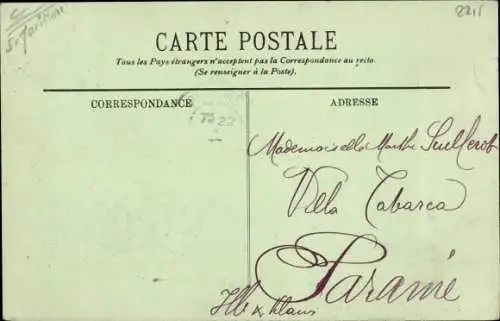 2215
CARTE POSTALE
Tous les Pays étrangers n'acceptent pas la Correspondance au recto.
(Se renseigner à la Poste).
CORRESPONDANCE
ADRESSE
Mademoiselle Marthe
Villa Tabarca
Paramé